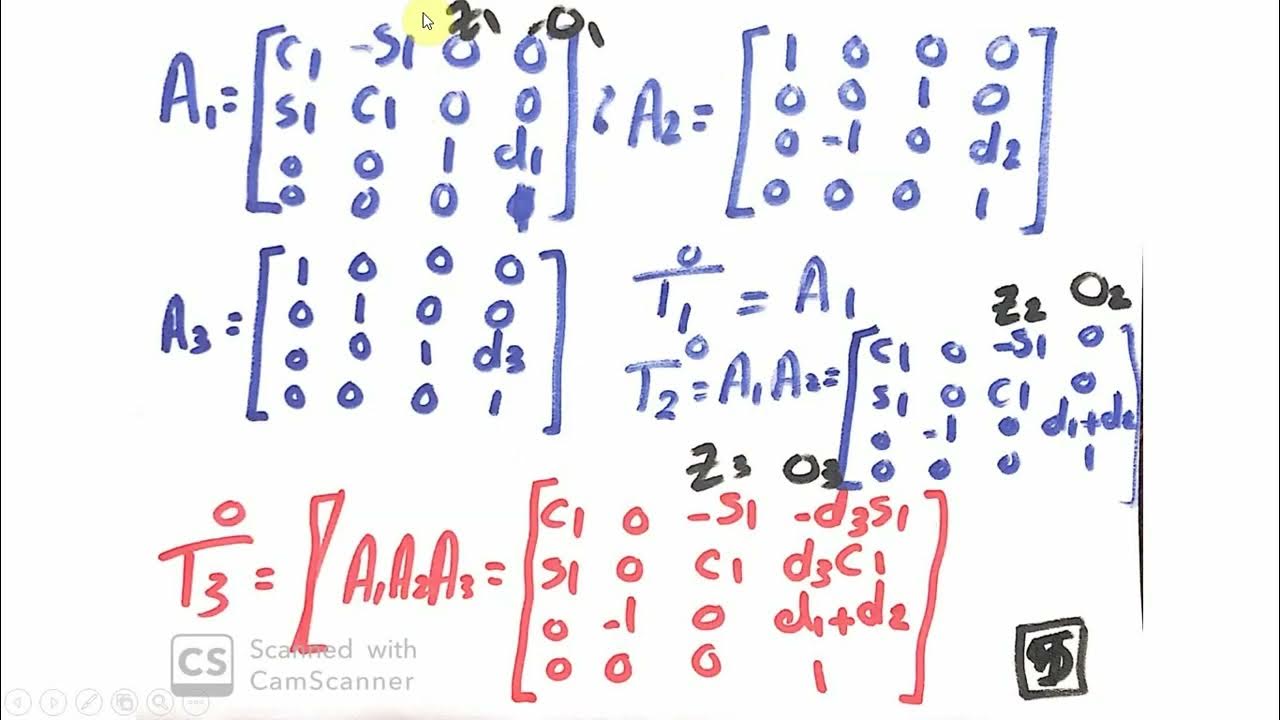 Z1 O1
A1 = [ C1 -S1 0 0 ; A2 = [ 1 0 0 0
S1 C1 0 0 0 0 1 0
0 0 1 d1 0 -1 0 d2
0 0 0 1 ] 0 0 0 1 ]
A3 = [ 1 0 0 0
0 1 0 0
0 0 1 d3
0 0 0 1 ]
0
T1 = A1
Z2 O2
0
T2 = A1 A2 = [ C1 0 -S1 0
S1 0 C1 0
0 -1 0 d1+d2
0 0 0 1 ]
Z3 O3
0
T3 = [ A1A2A3 = [ C1 0 -S1 -d3S1
S1 0 C1 d3C1
0 -1 0 d1+d2
0 0 0 1 ]
CS Scanned with
CamScanner